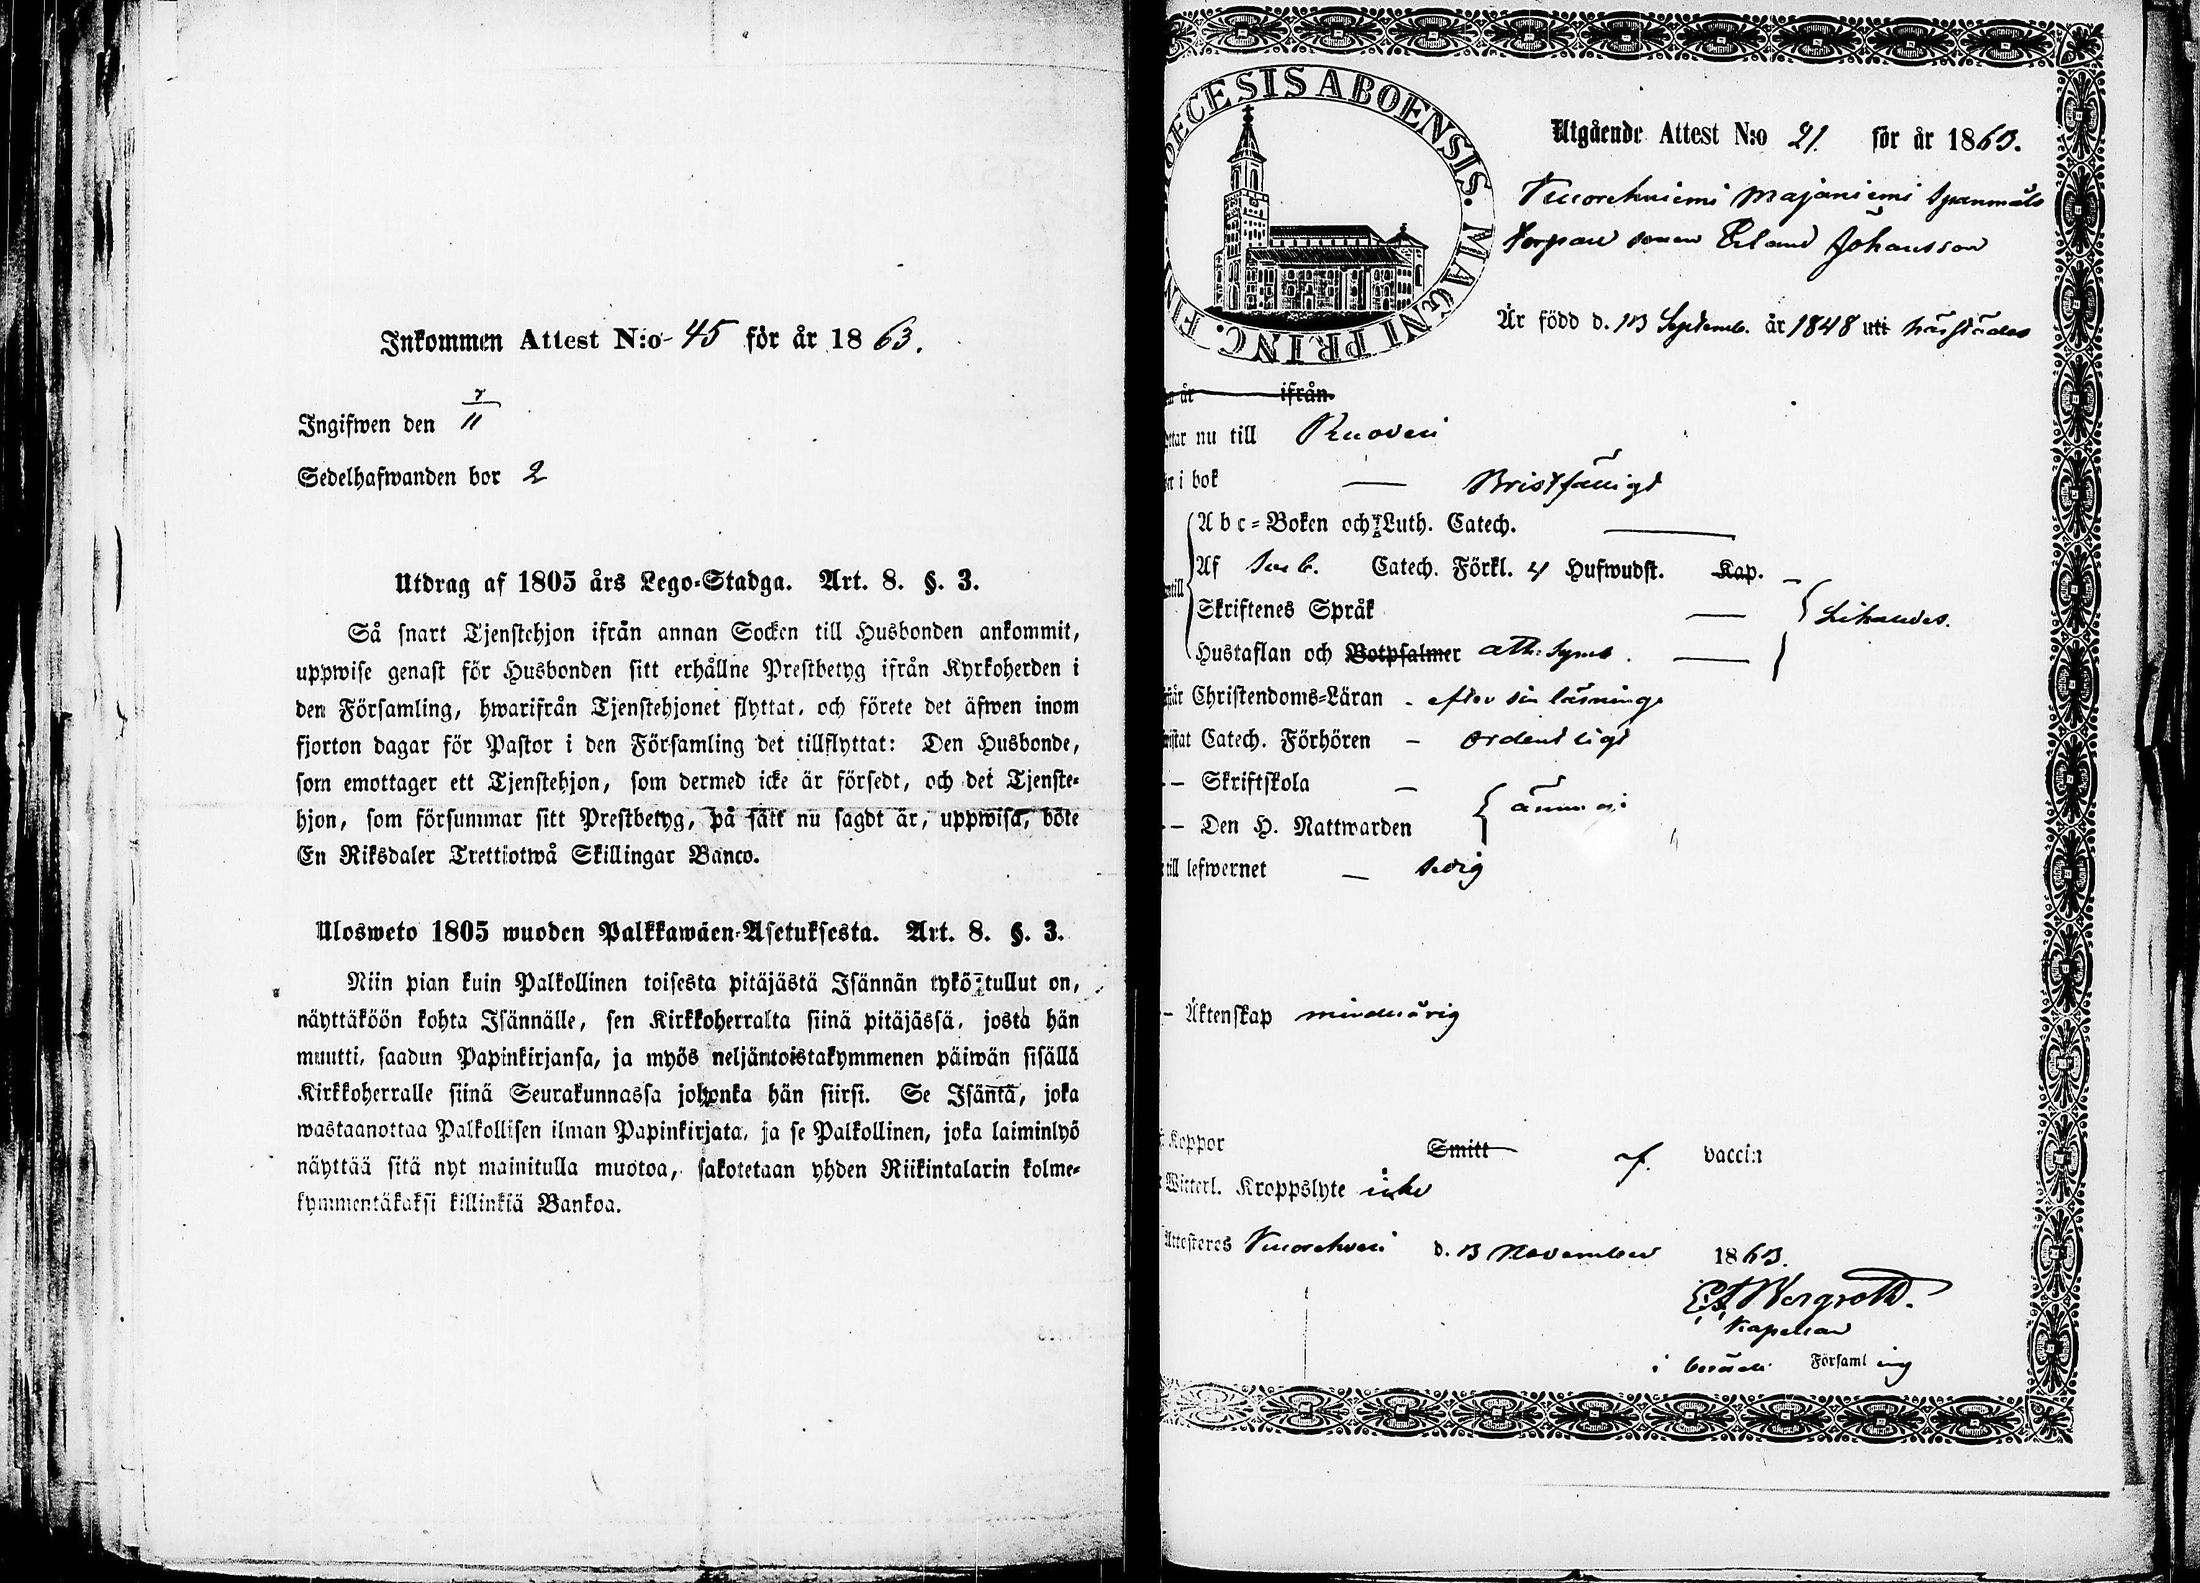 Inkommen Attest N:o 45 för år 1863.
Ingifwen den 7/11
Sedelhafwanden bor 2
Utdrag af 1805 års Lego-Stadga. Art. 8. §. 3.
Så snart Tjenstehjon ifrån annan Socken till Husbonden ankommit,
uppwise genast för Husbonden sitt erhållne Prestbetyg ifrån Kyrkoherden i
den Församling, hwarifrån Tjenstehjonet flyttat, och förete det äfwen inom
fjorton dagar för Pastor i den Församling det tillflyttat: Den Husbonde,
som emottager ett Tjenstehjon, som dermed icke är försedt, och det Tjenste-
hjon, som försummar sitt Prestbetyg, på sätt nu sagdt är, uppwisa, böte
En Riksdaler Trettiotwå Skillingar Banco.
Ulosweto 1805 wuoden Palkkawäen-Asetuksesta. Art. 8. §. 3.
Niin pian kuin Palkollinen toisesta pitäjästä Isännän tykö tullut on,
näyttäköön kohta Isännälle, sen Kirkkoherralta siinä pitäjässä, josta hän
muutti, saadun Papinkirjansa, ja myös neljäntoistakymmenen päiwän sisällä
Kirkkoherralle siinä Seurakunnassa johonka hän siirsi. Se Isäntä, joka
wastaanottaa Palkollisen ilman Papinkirjata, ja se Palkollinen, joka laiminlyö
näyttää sitä nyt mainitulla muotoa, sakotetaan yhden Riikintalarin kolme-
kymmentäkaksi killinkiä Bankoa.
DIOECESIS ABOENSIS. MAGNI PRINC. FIN
Utgående Attest N:o 21. för år 1863.
Wuorehniemi Majaniemi Spanmåls
torpare sonen Erland Johansson
Är född d. 13 Septemb. år 1848 uti härstädes
år ifrån
ttar nu till Ruovesi
i bok — Bristfälligt
Abc-Boken och Luth. Catech. —
Af Catech. Förkl. 4 Hufwudst. Kap. —
Skriftenes Språk —
Hustaflan och Botpsalmer Ath: Symb. —
Christendoms-Läran - efter sin läsning
Catech. Förhören - ordentligt
-- Skriftskola -
-- Den H. Nattwarden { ännu ej
till lefwernet — sedig
-- Äktenskap minderårig
Koppor Smitt af vaccin
Witterl. Kroppslyte icke
Attesteras d. 3 November 1863.
Bergroth.
Kapellan
i Församling